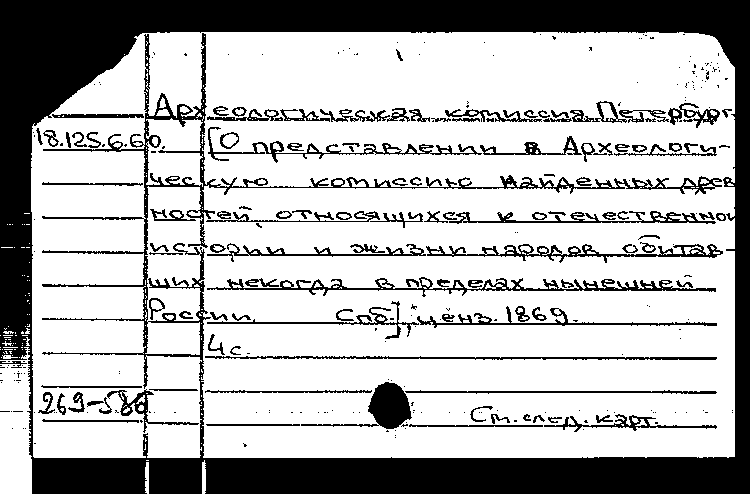 Археологическая комиссия. Петербург.
18.125.6.60. [О представлении в Археологи-
ческую комиссию найденных древ
ностей, относящихся к отечественной
истории и жизни народов, обитав-
ших некогда в пределах нынешней
России. Спб.], ценз. 1869.
4с.
269-586
См. след. карт.